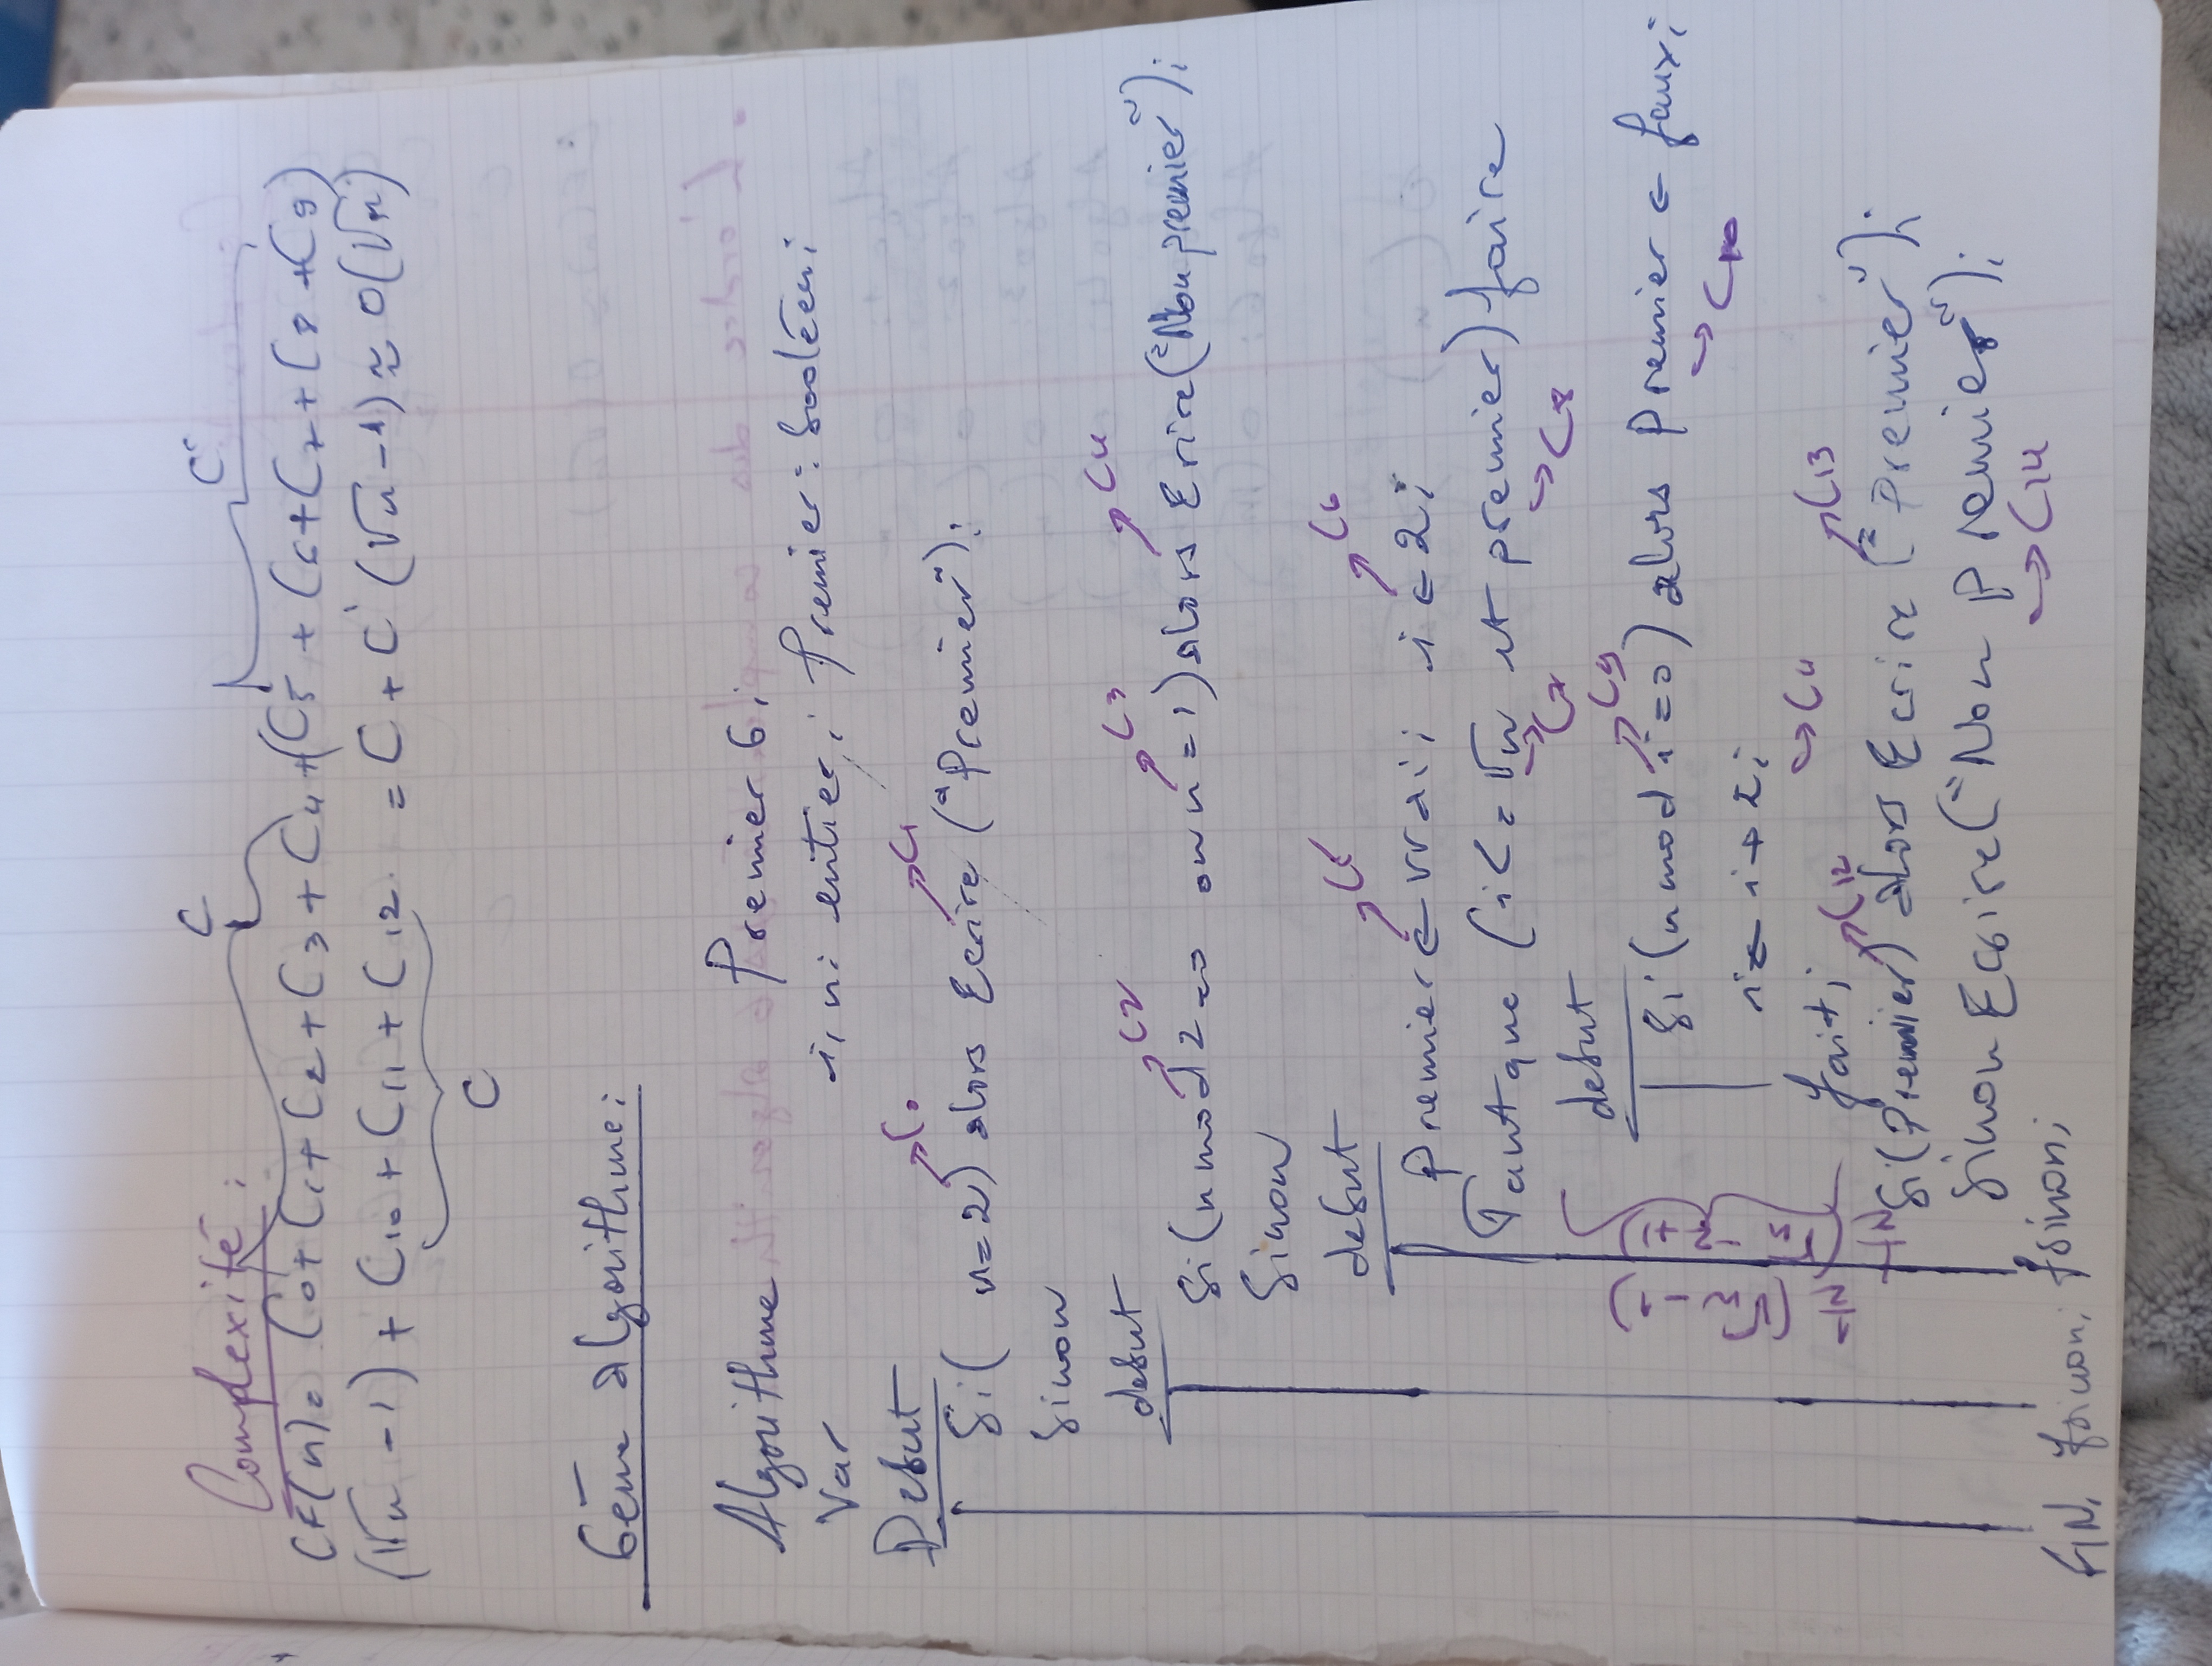 Complexité :
CF(n) = C0 + C1 + C2 + C3 + C4 + (C5 + C6 + C7 + C8 + C9)
(√n - 1) + C10 + C11 + C12 = C + C' (√n - 1) ≈ O(√n)
C
C'
C
6ém algorithme :
Algorithme Premier 6;
Var i, n: entier; premier: booléen;
Début
Si( n=2) alors Ecrire ("Premier");
→C0
→C1
Sinon
début
Si(n mod 2=0 ou n=1) alors Erire("Non premier");
→C2
→C3
→C4
Sinon
début
Premier ← vrai; i ← 2;
→C5
→C6
Tantque (i<=√n et premier) faire
→C7
→C8
debut
Si(n mod i=0) alors Premier ← faux;
→C9
→C10
i ← i + 2;
→C11
fait;
Si(Premier) alors Ecrire ("Premier");
→C12
→C13
Sinon Ecrire("Non Premier");
→C14
FIN. fsinon; fsinon;